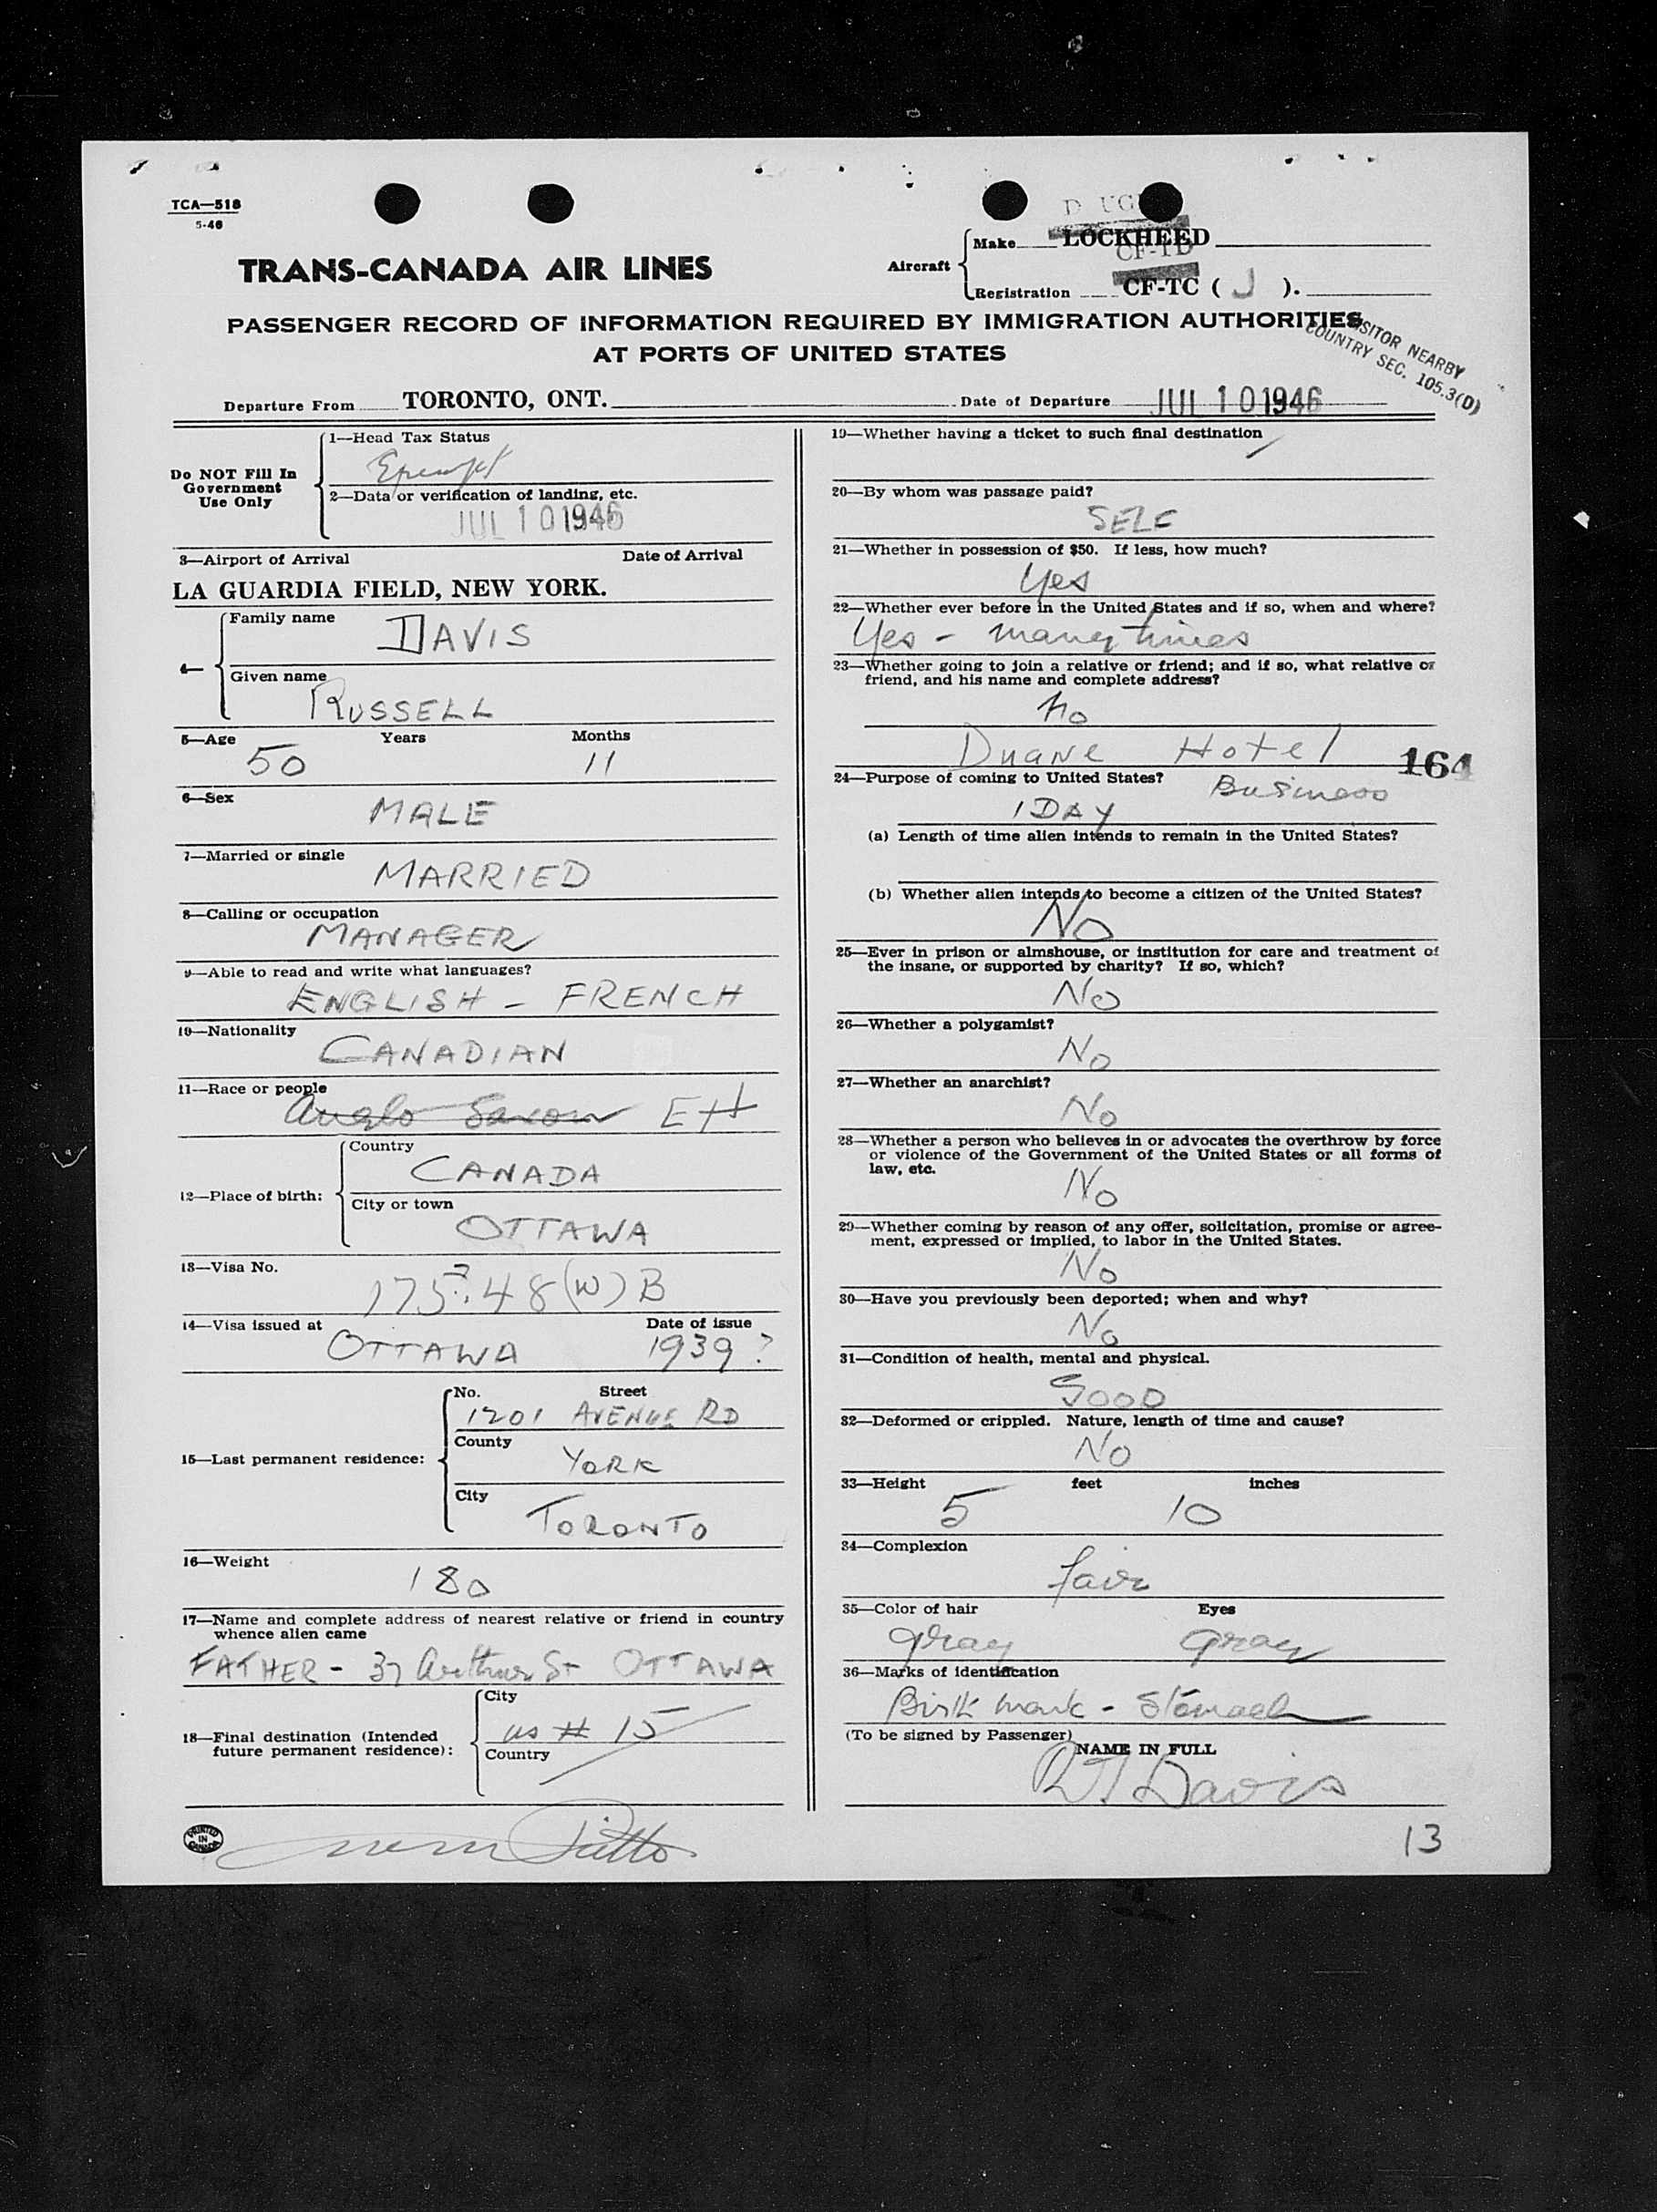 TCA—518
5-46
TRANS-CANADA AIR LINES
Aircraft
Make LOCKHEED
CF-TD
Registration CF-TC ( J ).
PASSENGER RECORD OF INFORMATION REQUIRED BY IMMIGRATION AUTHORITIES
AT PORTS OF UNITED STATES
VISITOR NEARBY
COUNTRY SEC. 105.3(D)
Departure From TORONTO, ONT. Date of Departure JUL 10 1946
Do NOT Fill In
Government
Use Only
1—Head Tax Status
2—Data or verification of landing, etc.
JUL 10 1946
3—Airport of Arrival Date of Arrival
LA GUARDIA FIELD, NEW YORK.
4—
Family name
DAVIS
Given name
RUSSELL
5—Age Years Months
50 11
6—Sex
MALE
7—Married or single
MARRIED
8—Calling or occupation
MANAGER
9—Able to read and write what languages?
ENGLISH - FRENCH
10—Nationality
CANADIAN
11—Race or people
Anglo Saxon
12—Place of birth:
Country
CANADA
City or town
OTTAWA
13—Visa No.
48 (W) B
14—Visa issued at Date of issue
OTTAWA 1939?
15—Last permanent residence:
No. Street
1201 AVENUE RD
County
YORK
City
TORONTO
16—Weight
180
17—Name and complete address of nearest relative or friend in country
whence alien came
FATHER - 37 Arthur St OTTAWA
18—Final destination (Intended
future permanent residence):
City
as # 15
Country
PRINTED
IN
CANADA
19—Whether having a ticket to such final destination
20—By whom was passage paid?
SELF
21—Whether in possession of $50. If less, how much?
Yes
22—Whether ever before in the United States and if so, when and where?
Yes - many times
23—Whether going to join a relative or friend; and if so, what relative or
friend, and his name and complete address?
No
Duane Hotel
164
24—Purpose of coming to United States?
Business
1 DAY
(a) Length of time alien intends to remain in the United States?
(b) Whether alien intends to become a citizen of the United States?
No
25—Ever in prison or almshouse, or institution for care and treatment of
the insane, or supported by charity? If so, which?
No
26—Whether a polygamist?
No
27—Whether an anarchist?
No
28—Whether a person who believes in or advocates the overthrow by force
or violence of the Government of the United States or all forms of
law, etc.
No
29—Whether coming by reason of any offer, solicitation, promise or agree-
ment, expressed or implied, to labor in the United States.
No
30—Have you previously been deported; when and why?
No
31—Condition of health, mental and physical.
GOOD
32—Deformed or crippled. Nature, length of time and cause?
No
33—Height feet inches
5 10
34—Complexion
fair
35—Color of hair Eyes
gray gray
36—Marks of identification
Birth mark - Stomach
(To be signed by Passenger)
NAME IN FULL
Davis
13